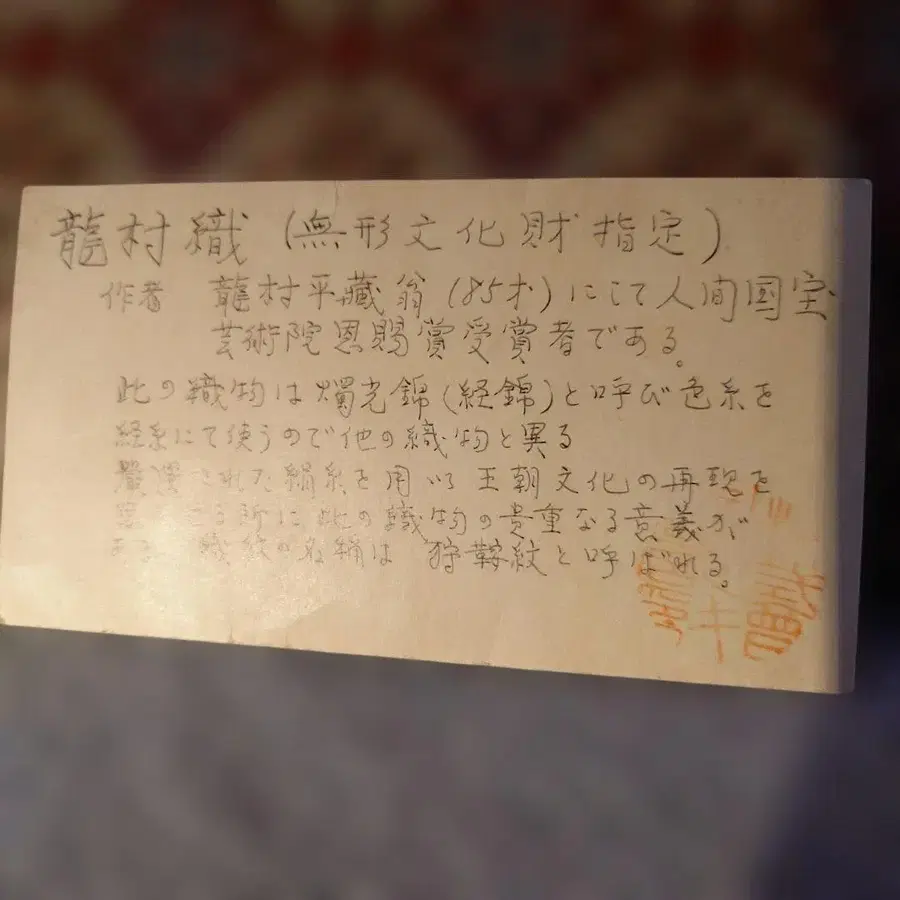 龍村織 (無形文化財指定)
作者 龍村平藏翁 (85才) にして人间国宝
芸術院恩賜賞受賞者である。
此の織物は燭光錦(経錦)と呼び色糸を
経糸にて使うので他の織物と異る
嚴選された絹糸を用い王朝文化の再現を
する所に此の織物の貴重なる意義が
ある 名稱は 狩鞍紋と呼ばれる。